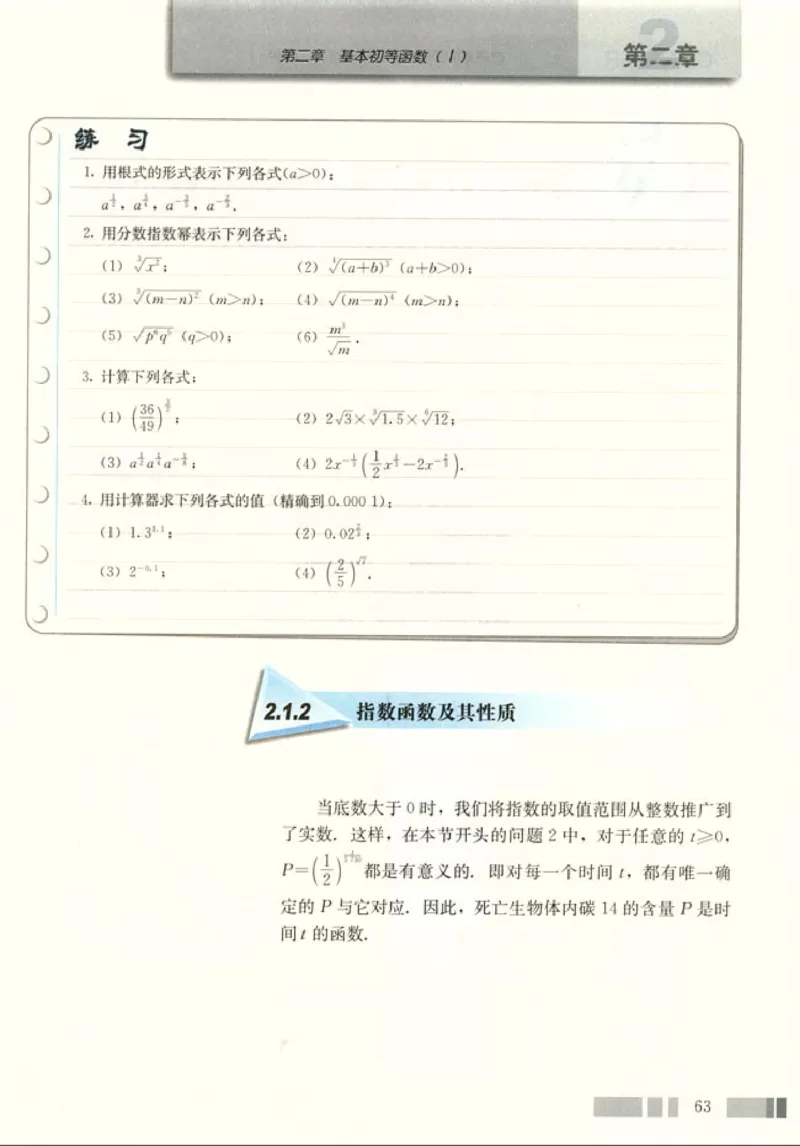 第二章 基本初等函数(Ⅰ)
2
第二章
练 习
1. 用根式的形式表示下列各式(a>0):
a^{1/2}, a^{3/4}, a^{-3/5}, a^{-2/3}.
2. 用分数指数幂表示下列各式:
(1) ∛(x²); (2) ∜((a+b)³) (a+b>0);
(3) ∛((m-n)²) (m>n); (4) √((m-n)⁴) (m>n);
(5) √(p⁶q⁵) (q>0); (6) m³/√m.
3. 计算下列各式:
(1) (36/49)^{3/2}; (2) 2√3×∛1.5×⁶√12;
(3) a^{1/2}a^{1/4}a^{-1/8}; (4) 2x^{-1/3}(1/2 x^{1/3}-2x^{-2/3}).
4. 用计算器求下列各式的值 (精确到0.000 1):
(1) 1.3^{2.1}; (2) 0.02^{2/3};
(3) 2^{-0.1}; (4) (2/5)^{√7}.
2.1.2 指数函数及其性质
当底数大于0时,我们将指数的取值范围从整数推广到
了实数. 这样,在本节开头的问题2中,对于任意的 t≥0,
P=(1/2)^{t/5730} 都是有意义的. 即对每一个时间 t,都有唯一确
定的 P 与它对应. 因此,死亡生物体内碳 14 的含量 P 是时
间 t 的函数.
63